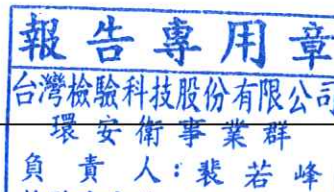 報告專用章
台灣檢驗科技股份有限公司
環安衛事業群
負責人：裴若峰